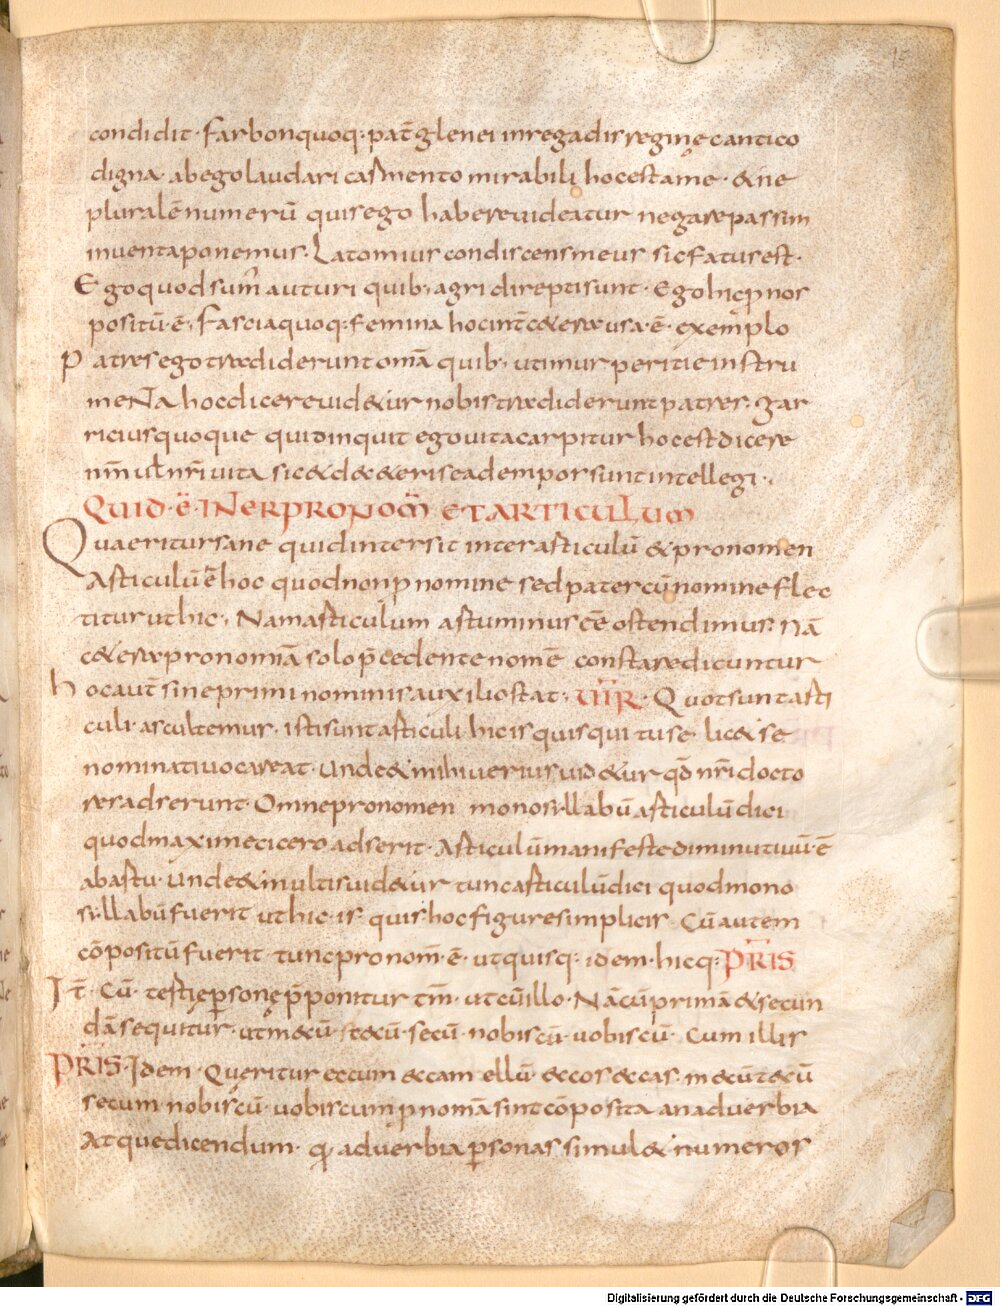 condidit· farbonquoq: pat̄ glenei inregadir regine cantico
digna· abego laudari casmento mirabili hocest ame· & ne
pluralē numerū quis ego habere uideatur negare passim
inuenta ponemus· Latomius condiscens meus sic fatus est·
Ego quod sum̄ auturi quib; agri direpti sunt· Ego hic p nos
positū ē· Fascia quoq: femina hoc int̄ c&era usa· ē· exemplo
Patres ego tradiderunt om̄a quib; utimur peritie instru
menta hoc dicere uid&ur nobis tradiderunt patres· Gar
ricius quoque quid inquit ego uita carpitur hoc est dicere
nrm̄ ul nrī uita sic & de c&eris eadem possunt intellegi·
QUID· Ē· INTER PRONOM̄ ET ARTICULUM
Quaeritur sane quid intersit inter articulū & pronomen
Articulū ē hoc quod non p nomine sed pater cū nomine flec
titur ut hic· Nam articulum astuminus cē ostendimus: nā
c&era pronomīa solo p̄cedente nomē constare dicuntur
hoc aut̄ sine primi nominis auxilio stat· UIR̄· Quot sunt arti
culi· ascultemur· isti sunt articuli· hic is quis qui tu se· lic& se
nominatiuo careat· unde & mihi uerius uid&ur qd̄ nrī docto
res adserunt· Omne pronomen monosillabū articulū dici
quod maxime cicero adserit· Articulū manifeste diminutiuū ē
ab artu· unde & in ultis uid&ur tunc articulū dici quod mono
sillabū fuerit ut hic· is· quis· hoc figure simplicis· Cū autem
cōpositū fuerit tunc pronom̄· ē· ut quisq: idem· hicq: PRIS
It̄· Cū· testie psone p̄ponitur tm̄· ut cū illo· Nā cū primā & secun
dā sequitur· ut mecū· tecū· secū· nobiscū· uobiscū· Cum illis
PRIS· Idem· Queritur eccum eccam ellū· eccos eccas· mecū tecū
secum· nobiscū· uobiscum pnom̄a sint cōposita an aduerbia
Atque dicendum· q; aduerbia psonas simul & numeros
Digitalisierung gefördert durch die Deutsche Forschungsgemeinschaft - DFG